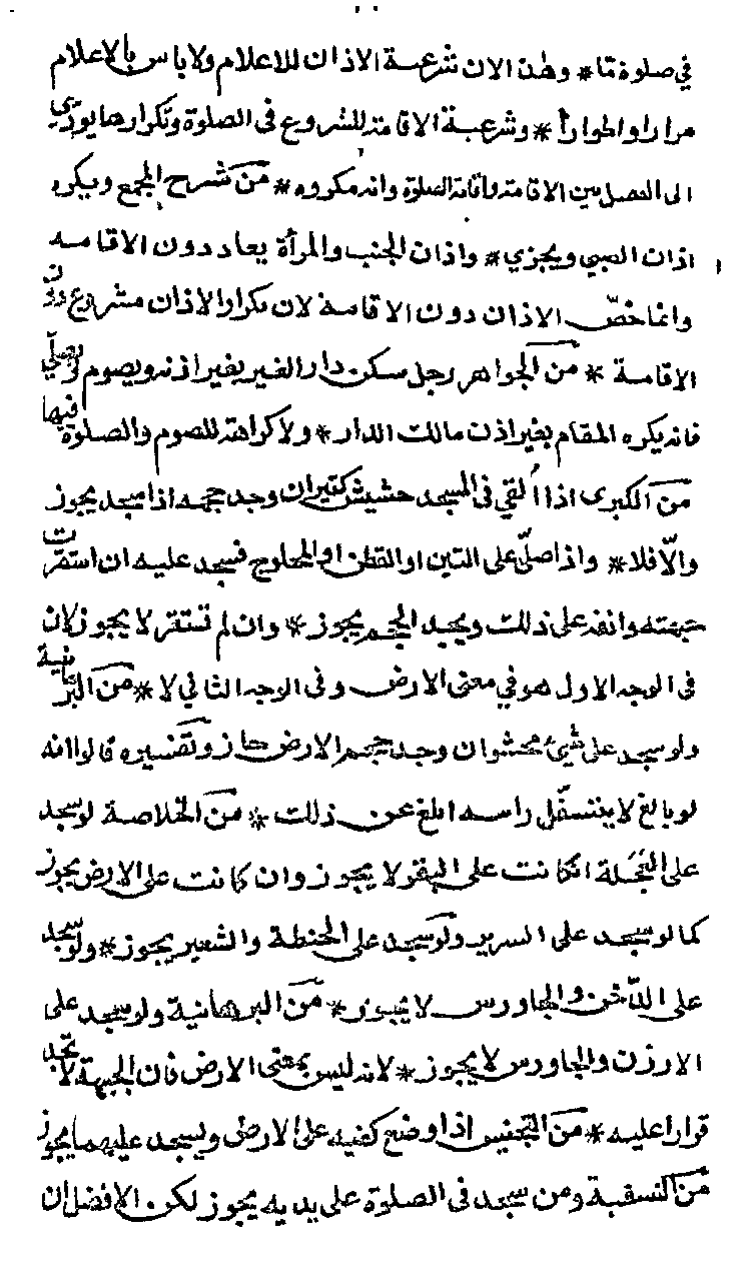 في صلوة ما * وهذا لان شرعية الاذان للاعلام ولا باس بالاعلام
مرارا واطوارا * وشرعية الاقامة للشروع في الصلوة وتكرارها يؤدي
الى الفصل بين الاقامة واقامة الصلوة وانه مكروه * من شرح المجمع ويكره
اذان الصبي ويجزي * واذان الجنب والمرأة يعاد دون الاقامه
وانما خص الاذان دون الاقامة لان تكرار الاذان مشروع دون
الاقامة * من الجواهر رجل سكن دار الغير بغير اذنه ويصوم ويصلي فيها
فانه يكره المقام بغير اذن مالك الدار * ولا كراهة للصوم والصلوة
من الكبرى اذا القي في المسجد حشيش كثير ان وجد حجمه اذا سجد يجوز
والا فلا * واذا صلى على التبن او القطن او المحلوج فسجد عليه ان استقرت
جبهته وانفه على ذلك ويجد الحجم يجوز * وان لم تستقر لا يجوز لان
في الوجه الاول هو في معنى الارض وفي الوجه الثاني لا * من
ولو سجد على شيء محشو ان وجد حجم الارض جاز وتفسيره قالوا انه
لو بالغ لا يتسفل راسه ابلغ من ذلك * من الخلاصة لو سجد
على العجلة ان كانت على البقر لا يجوز وان كانت على الارض يجوز
كما لو سجد على السرير ولو سجد على الحنطة والشعير يجوز * ولو سجد
على الدخن والجاورس لا يجوز * من البرهانية ولو سجد على
الارزن والجاورس لا يجوز * لانه ليس بمعنى الارض فان الجبهة لا تجد
قرارا عليه * من التجنيس اذا وضع كفيه على الارض ويسجد عليهما يجوز
من النسفية ومن سجد في الصلوة على يديه يجوز لكن الافضل ان